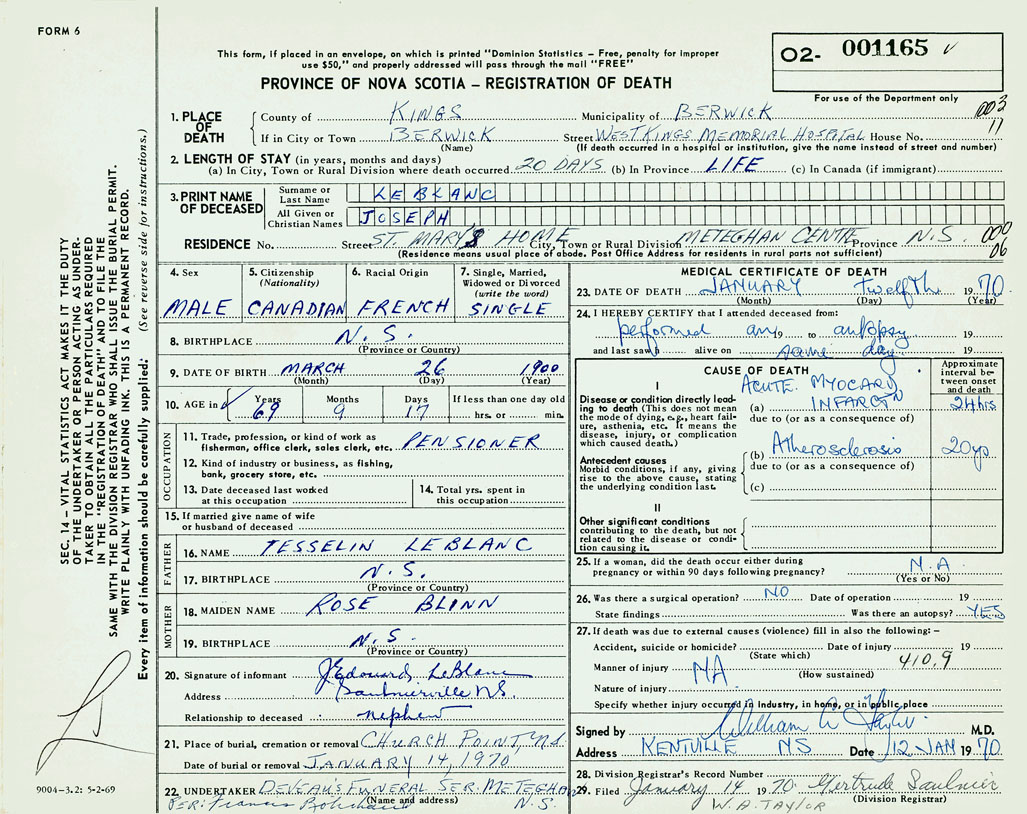 FORM 6
This form, if placed in an envelope, on which is printed "Dominion Statistics – Free, penalty for improper
use $50," and properly addressed will pass through the mail "FREE"
PROVINCE OF NOVA SCOTIA – REGISTRATION OF DEATH
02- 001165
For use of the Department only
003
11
SEC. 14 – VITAL STATISTICS ACT MAKES IT THE DUTY
OF THE UNDERTAKER OR PERSON ACTING AS UNDER-
TAKER TO OBTAIN ALL THE PARTICULARS REQUIRED
IN THE "REGISTRATION OF DEATH" AND TO FILE THE
SAME WITH THE DIVISION REGISTRAR WHO SHALL ISSUE THE BURIAL PERMIT.
WRITE PLAINLY WITH UNFADING INK. THIS IS A PERMANENT RECORD.
Every item of information should be carefully supplied: (See reverse side for instructions.)
9004–3.2: 5-2-69
1. PLACE OF DEATH
County of KINGS Municipality of BERWICK
If in City or Town BERWICK Street WEST KINGS MEMORIAL HOSPITAL House No.
(Name) (If death occurred in a hospital or institution, give the name instead of street and number)
2. LENGTH OF STAY (in years, months and days)
(a) In City, Town or Rural Division where death occurred 20 DAYS (b) In Province LIFE (c) In Canada (if immigrant)
3. PRINT NAME OF DECEASED
Surname or Last Name LEBLANC
All Given or Christian Names JOSEPH
RESIDENCE No. Street ST. MARY'S HOME City, Town or Rural Division METEGHAN CENTRE Province N.S.
000
06
(Residence means usual place of abode. Post Office Address for residents in rural parts not sufficient)
4. Sex MALE
5. Citizenship (Nationality) CANADIAN
6. Racial Origin FRENCH
7. Single, Married, Widowed or Divorced (write the word) SINGLE
8. BIRTHPLACE N.S.
(Province or Country)
9. DATE OF BIRTH MARCH 26 1900
(Month) (Day) (Year)
10. AGE in Years 69 Months 9 Days 17 If less than one day old hrs. or min.
OCCUPATION
11. Trade, profession, or kind of work as
fisherman, office clerk, sales clerk, etc. PENSIONER
12. Kind of industry or business, as fishing,
bank, grocery store, etc.
13. Date deceased last worked
at this occupation
14. Total yrs. spent in
this occupation
15. If married give name of wife
or husband of deceased
FATHER
16. NAME TESSELIN LEBLANC
17. BIRTHPLACE N.S.
(Province or Country)
MOTHER
18. MAIDEN NAME ROSE BLINN
19. BIRTHPLACE N.S.
(Province or Country)
20. Signature of informant J. Edouard LeBlanc
Address Saulnierville N.S.
Relationship to deceased nephew
21. Place of burial, cremation or removal CHURCH POINT, N.S.
Date of burial or removal JANUARY 14, 1970
22. UNDERTAKER DEVEAU'S FUNERAL SER. METEGHAN
(Name and address) N.S.
PER: Francis
MEDICAL CERTIFICATE OF DEATH
23. DATE OF DEATH JANUARY twelfth 1970
(Month) (Day) (Year)
24. I HEREBY CERTIFY that I attended deceased from:
performed an 19 to autopsy 19
and last saw h alive on same day 19
CAUSE OF DEATH
Approximate interval between onset and death
I
Disease or condition directly lead-
ing to death (This does not mean
the mode of dying, e.g., heart fail-
ure, asthenia, etc. It means the
disease, injury, or complication
which caused death.)
ACUTE MYOCARD
(a) INFARCTN 24 hrs
due to (or as a consequence of)
Antecedent causes
Morbid conditions, if any, giving
rise to the above cause, stating
the underlying condition last.
(b) Atherosclerosis 20 yr
due to (or as a consequence of)
(c)
II
Other significant conditions
contributing to the death, but not
related to the disease or condi-
tion causing it.
25. If a woman, did the death occur either during
pregnancy or within 90 days following pregnancy? N.A
(Yes or No)
26. Was there a surgical operation? NO Date of operation 19
State findings Was there an autopsy? YES
27. If death was due to external causes (violence) fill in also the following: –
Accident, suicide or homicide? Date of injury 19
(State which)
410.9
Manner of injury NA
(How sustained)
Nature of injury
Specify whether injury occurred in Industry, in home, or in public place
Signed by William A Taylor M.D.
Address KENTVILLE NS Date 12 JAN 1970
28. Division Registrar's Record Number
29. Filed January 14 1970 Gertrude Saulnier
(Division Registrar)
W.A. TAYLOR